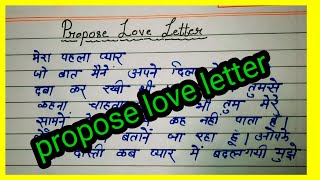 Propose Love Letter
मेरा पहला प्यार
जो बात मैंने अपने दिल
दबा कर रखी तुमसे
कहना चाहता तुम मेरे
सामने कह नहीं पाता हूँ।
बताने जा रहा हूँ। आपके
दोस्ती कब प्यार में बदल गयी मुझे
propose love letter